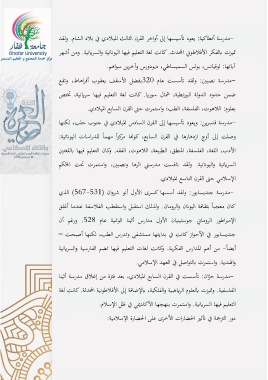 جامعة ظفار
Dhofar University
مركز خدمة المجتمع و التعليم المستمر
-مدرسة أنطاكية: يعود تأسيسها إلى أواخر القرن الثالث الميلادي في بلاد الشام. ولقد
تميزت بالفكر الأفلاطوني المحدث. كانت لغة التعليم فيها اليونانية والسريانية. ومن أشهر
آبائها: لوقيانس، بولس السميساطي، ديودورس وآخرين سواهم.
-مدرسة نصيبين: ولقد تأسست عام 320بفضل الأسقف يعقوب أفراهاط، وتقع
ضمن حدود الدولة البيزنطية، شمال سوريا. كانت لغة التعليم فيها سريانية، تختص
بعلوم: اللاهوت، الفلسفة، الطب؛ واستمرت حتى القرن السابع الميلادي.
-مدرسة قنسرين: ويعود تأسيسها إلى القرن السادس الميلادي في جنوب حلب، لكنها
وصلت إلى أوج ازدهارها في القرن السابع، كونها مركزاً مهماً للدراسات اليونانية:
الأدب، اللغة، الفلسفة، المنطق، الطبيعة، اللاهوت، الفلك. وكان التعليم فيها باللغتين
السريانية واليونانية. ولقد نافست مدرستي الرها ونصيبين، واستمرت تحت الحكم
الإسلامي حتى القرن التاسع الميلادي.
-مدرسة جنديسابور: ولقد أسسها كسرى الأول أنو شروان (531–567) الذي
كان معجباً بثقافة اليونان والرومان. ولذلك استقبل واستقطب الفلاسفة عندما أغلق
الإمبراطور الروماني جوستينيان الأول مدارس أثينا الوثنية عام 528. ورغم أن
جنديسابور في الأحواز كانت في بدايتها مستشفى وتدرس الطب، لكنها أصبحت –
أيضاً– من أهم المدارس الفكرية. وكانت لغات التعليم فيها تضم الفارسية والسريانية
والهندية. واستمرت بالتواصل في العهد الإسلامي.
-مدرسة حرّان: تأسست في القرن السابع الميلادي، بعد فترة من إغلاق مدرسة أثينا
الفلسفية. وتميزت بالعلوم الرياضية والفلكية، بالإضافة إلى الأفلاطونية المحدثة. كانت لغة
التعليم فيها السريانية. واستمرت بنهجها الأكاديمي في ظل الإسلام.
دور الترجمة في تأثير الحضارات الأخرى على الحضارة الإسلامية: